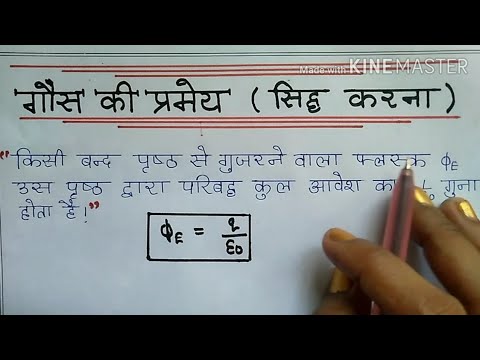 Made with KINEMASTER
गौस की प्रमेय ( सिद्ध करना )
"किसी बन्द पृष्ठ से गुजरने वाला फ्लक्स ϕE
उस पृष्ठ द्वारा परिबद्ध कुल आवेश का गुना
होता है।"
ϕE = q/ε0